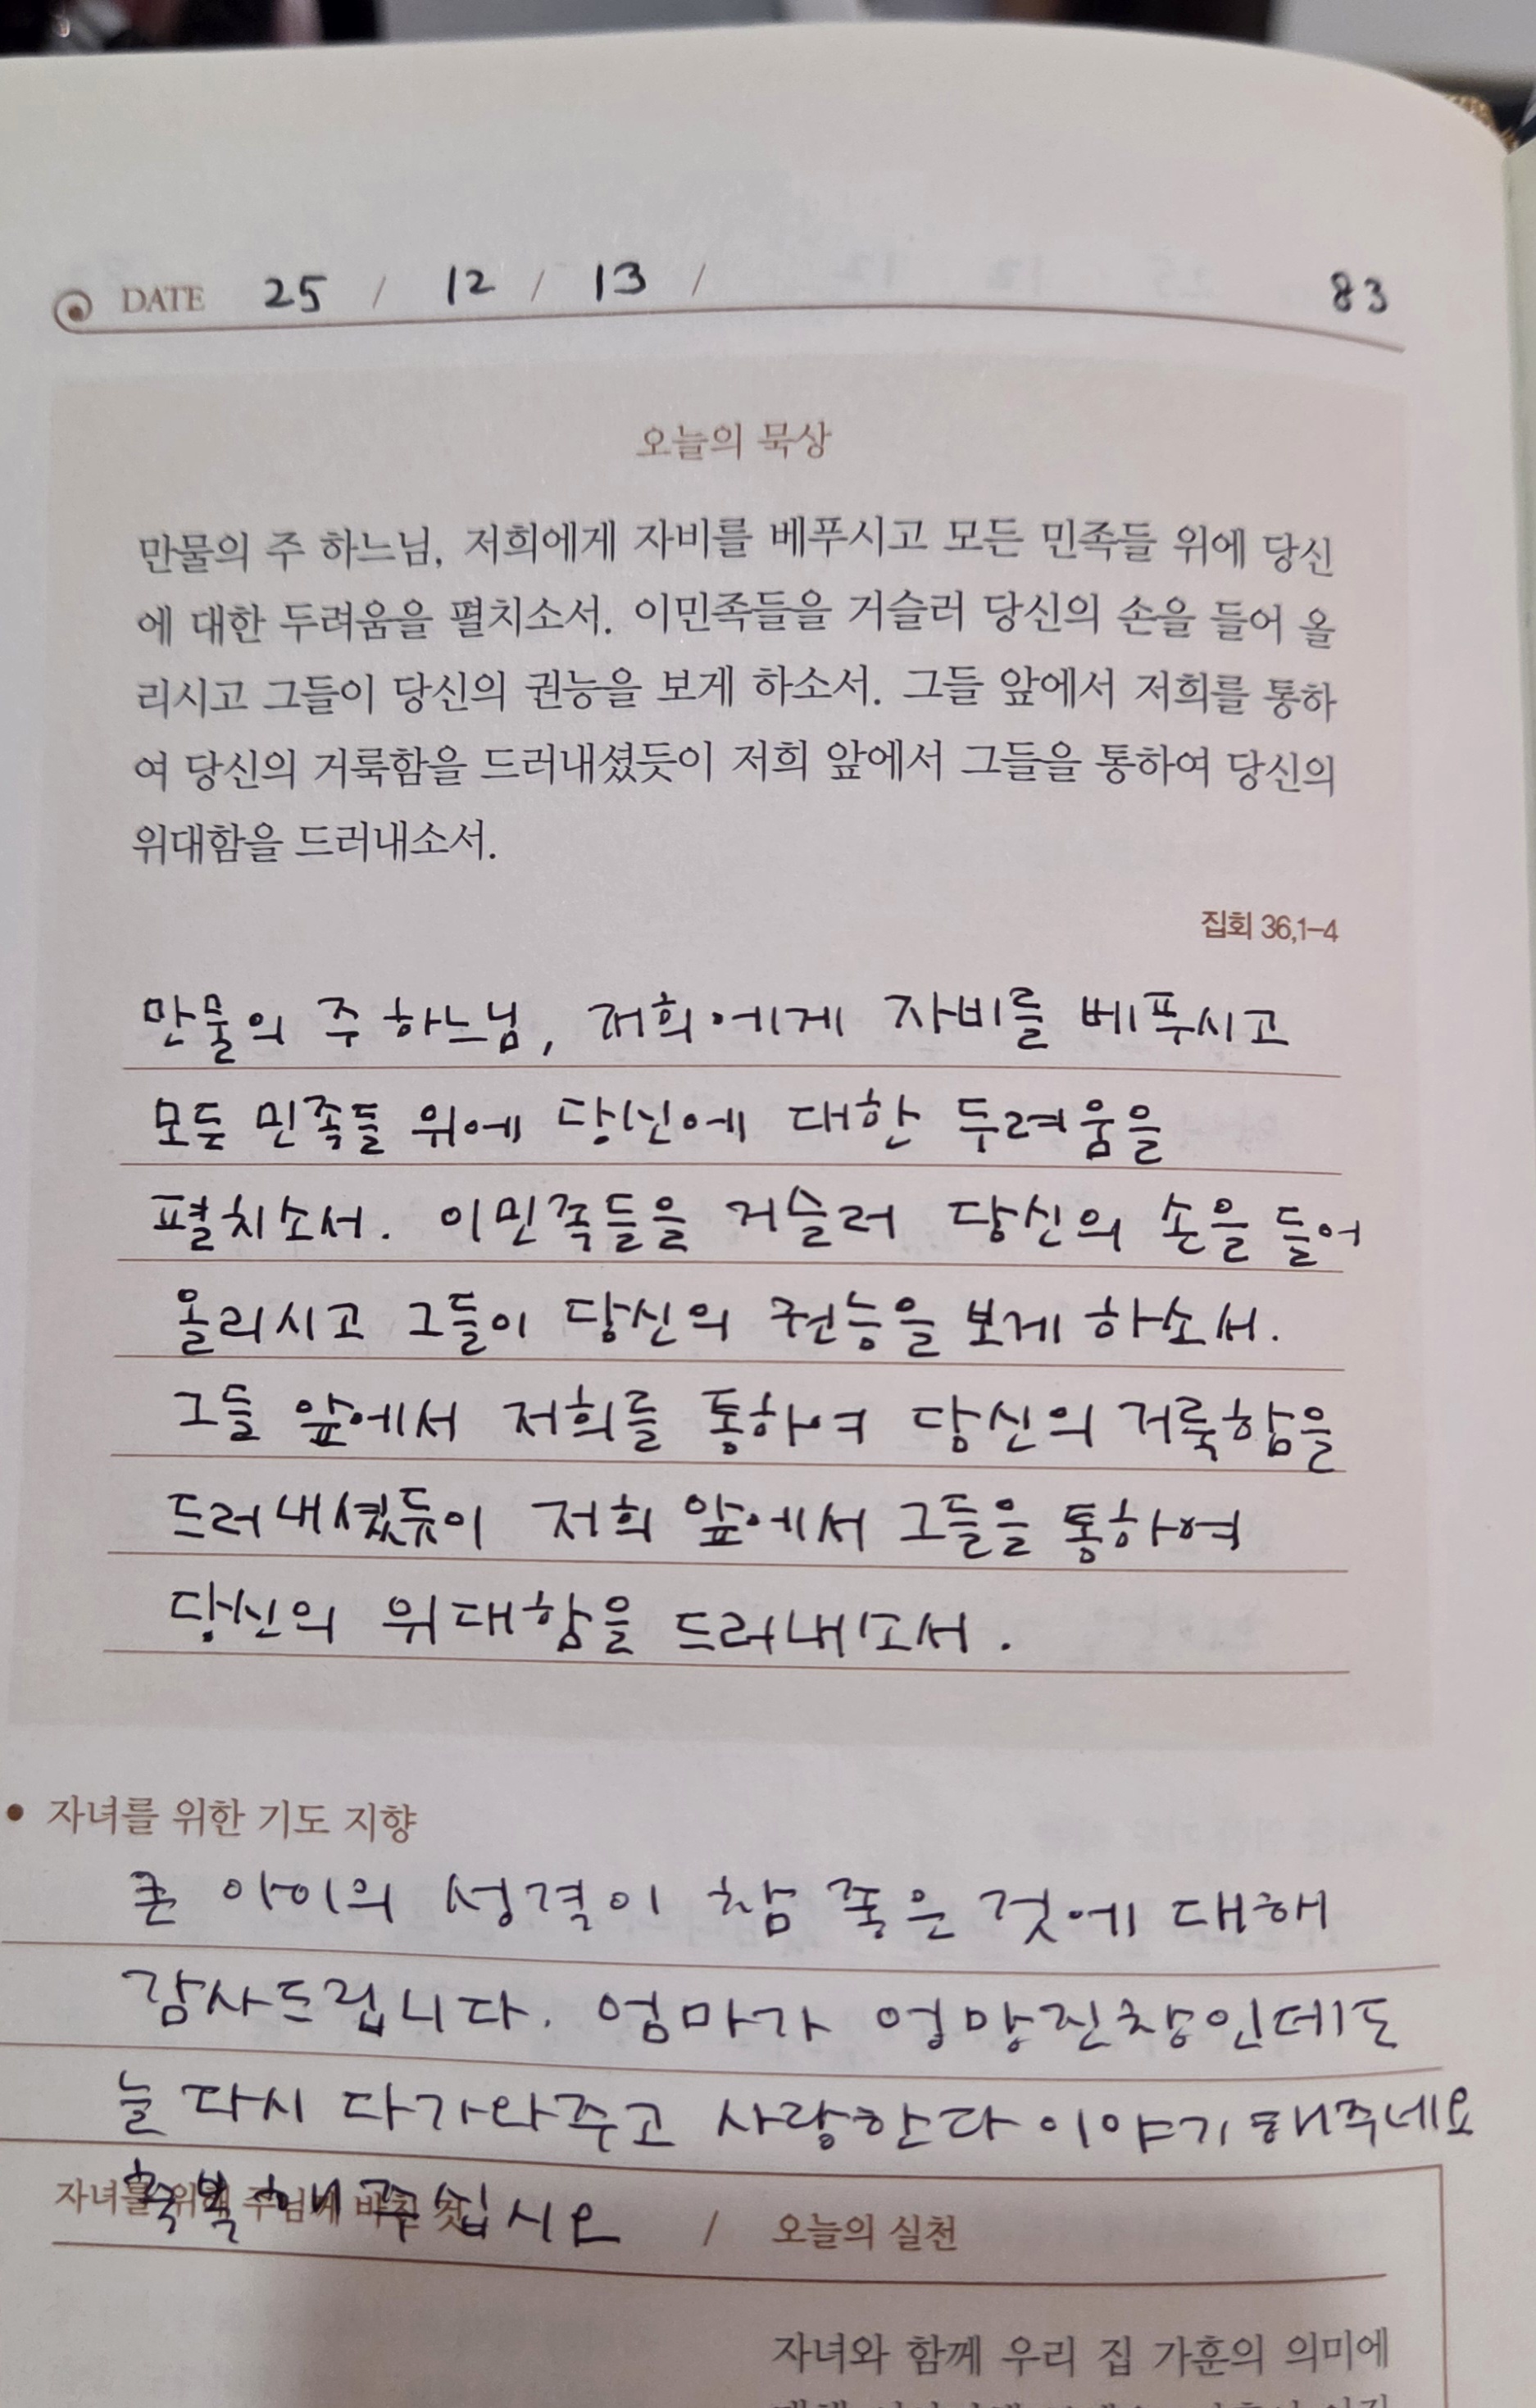 DATE 25 / 12 / 13 / 83
오늘의 묵상
만물의 주 하느님, 저희에게 자비를 베푸시고 모든 민족들 위에 당신
에 대한 두려움을 펼치소서. 이민족들을 거슬러 당신의 손을 들어 올
리시고 그들이 당신의 권능을 보게 하소서. 그들 앞에서 저희를 통하
여 당신의 거룩함을 드러내셨듯이 저희 앞에서 그들을 통하여 당신의
위대함을 드러내소서.
집회 36,1-4
만물의 주 하느님, 저희에게 자비를 베푸시고
모든 민족들 위에 당신에 대한 두려움을
펼치소서. 이민족들을 거슬러 당신의 손을 들어
올리시고 그들이 당신의 권능을 보게 하소서.
그들 앞에서 저희를 통하여 당신의 거룩함을
드러내셨듯이 저희 앞에서 그들을 통하여
당신의 위대함을 드러내소서.
• 자녀를 위한 기도 지향
큰 아이의 성격이 참 좋은 것에 대해
감사드립니다. 엄마가 엉망진창인데도
늘 다시 다가와주고 사랑한다 이야기해주네요
축복해주십시오
자녀를 위해 주님께 바친 것 / 오늘의 실천
자녀와 함께 우리 집 가훈의 의미에